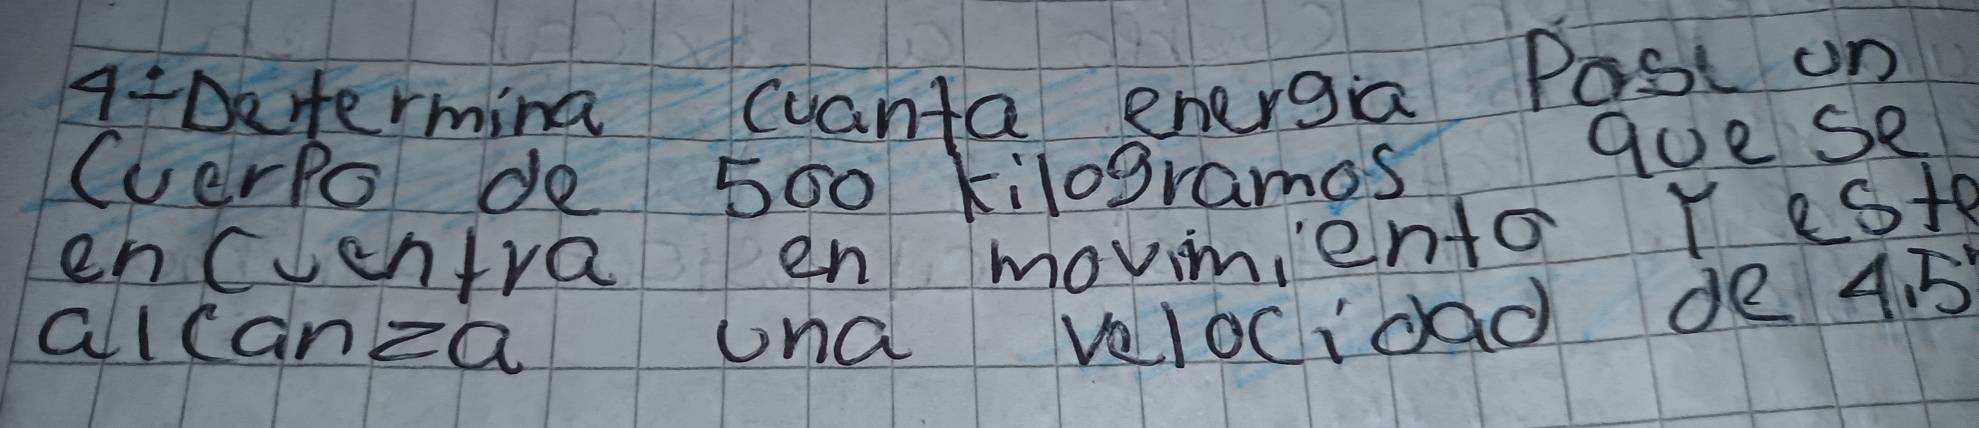 4÷Determina cuanta energia Posi un
Cuerpo de 500 kilogramos que se
encuentra en movimiento Y este
alcanza una velocidad de 4.5